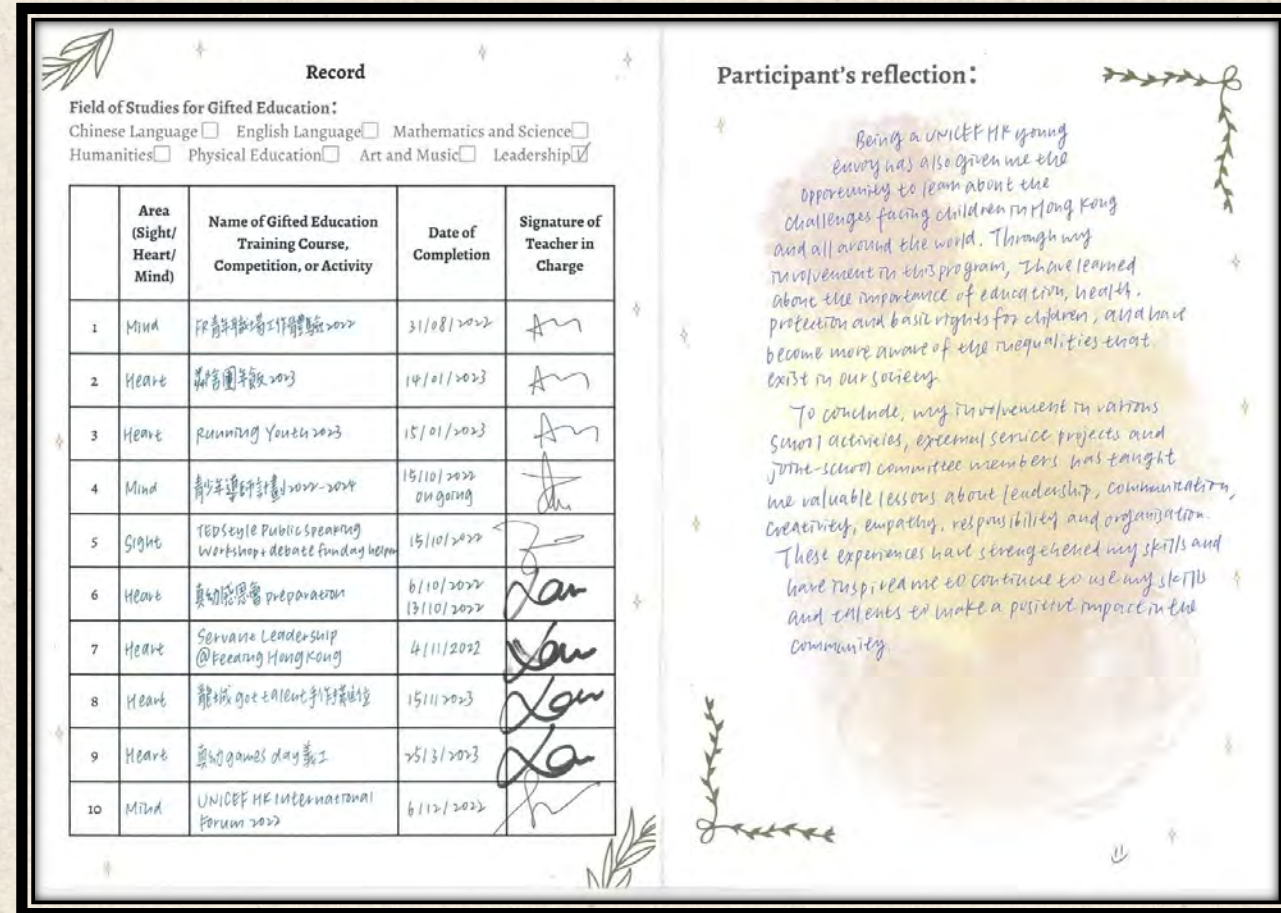 Record
Field of Studies for Gifted Education:
Chinese Language☐ English Language☐ Mathematics and Science☐
Humanities☐ Physical Education☐ Art and Music☐ Leadership☑
Area (Sight/ Heart/ Mind)
Name of Gifted Education Training Course, Competition, or Activity
Date of Completion
Signature of Teacher in Charge
1 Mind FR青年職場工作體驗2022 31/08/2022
2 Heart 團年飯2023 14/01/2023
3 Heart Running Youth 2023 15/01/2023
4 Mind 青少年導師計劃2022-2024 15/10/2022
ongoing
5 Sight TEDStyle Public Speaking
Workshop + debate funday helper 15/10/2022
6 Heart 真幼感恩會 preparation 6/10/2022
13/10/2022
7 Heart Servant Leadership
@Feeding Hong Kong 4/11/2022
8 Heart 龍城 got talent 手作攤位
9 Heart 真幼 games day 義工 25/3/2023
10 Mind UNICEF HK International
Forum 2022 6/12/2022
Participant's reflection:
Being a UNICEF HK young
envoy has also given me the
opportunity to learn about the
challenges facing children in Hong Kong
and all around the world. Through my
involvement in this program, I have learned
about the importance of education, health,
protection and basic rights for children, and have
become more aware of the inequalities that
exist in our society.
To conclude, my involvement in various
school activities, external service projects and
joint-school committee members has taught
me valuable lessons about leadership, communication,
creativity, empathy, responsibility and organisation.
These experiences have strengthened my skills and
have inspired me to continue to use my skills
and talents to make a positive impact in the
community.